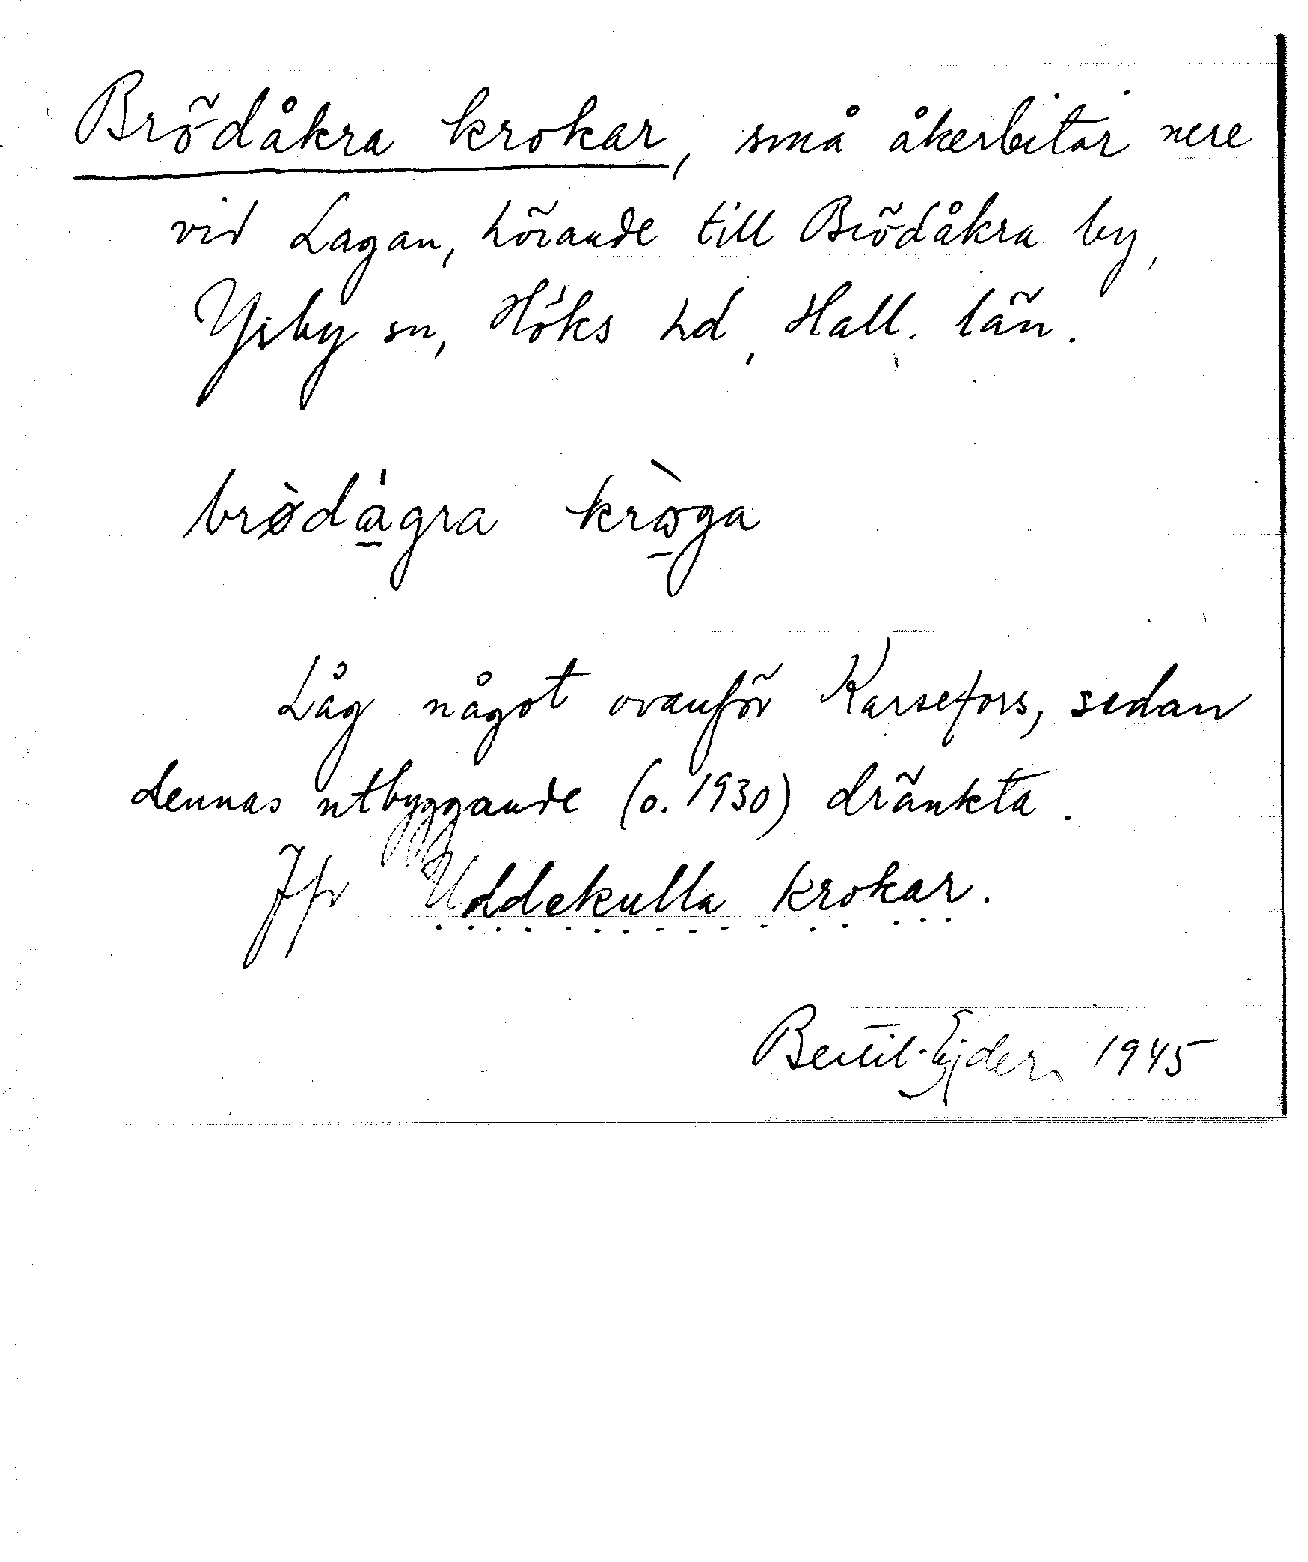 Brödåkra krokar, små åkerbitar nere
vid Lagan, hörande till Brödåkra by,
Ysby sn, Höks hd, Hall. län.
brø̀då̀gra krò̱ga
Låg något ovanför Karsefors, sedan
dennas utbyggande (o. 1930) dränkta.
Jfr Uddekulla krokar.
Bertil Ejder 1945